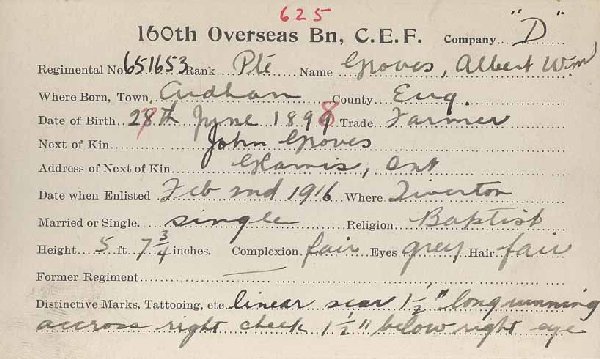 625
160th Overseas Bn, C.E.F. Company "D"
Regimental No. 651653 Rank Pte Name Groves, Albert Wm
Where Born, Town, Ardhan County Eng.
Date of Birth 28th June 1898 Trade Farmer
Next of Kin John Groves
Address of Next of Kin Glamis, Ont
Date when Enlisted Feb 2nd 1916 Where Tiverton
Married or Single single Religion Baptist
Height 5 ft. 7 3/4 inches. Complexion fair Eyes grey Hair fair
Former Regiment —
Distinctive Marks, Tattooing, etc linear scar 1 1/2" long running
accross right cheek 1 1/2" below right eye